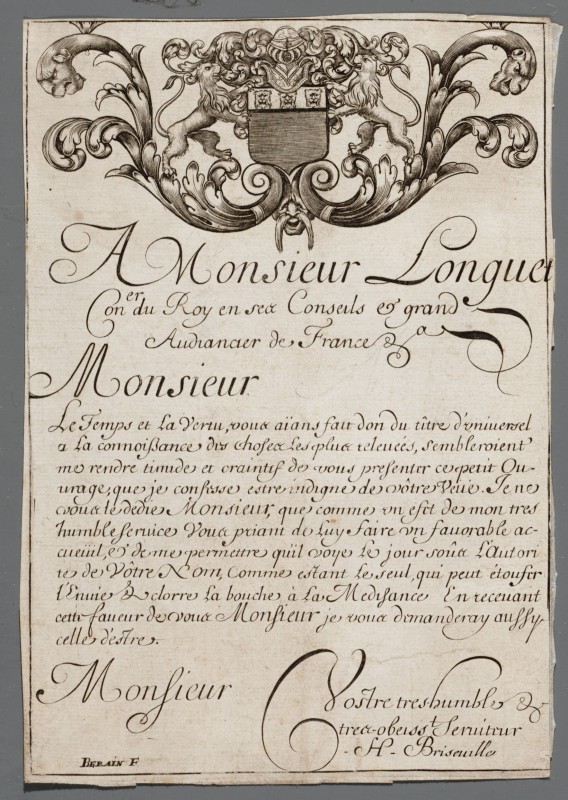 A Monsieur Longuet
Con.er du Roy en ses Conseils & grand
Audiancier de France &a
Monsieur
Le Temps et La Vertu, vous aïans fait don du titre d'vniversel
a La connoißance des choses Les plus releueés, sembleroient
me rendre timide et craintif de vous presenter ce petit Ou-
urage, que je confesse estre indigne de vôtre Veüe. Je ne
vous le dedie Monsieur, que comme vn efet de mon tres
humble service Vous priant de Luy faire vn favorable ac-
cueüil, & de me permettre qu'il voye le jour soûs L'Autori
té de Vôtre Nom, Comme estant Le seul, qui peut étoufer
l'Envie & clorre La bouche à La Medisance En recevant
cette faueur de vous Monsieur je vous demanderay aussy
celle d'estre.
Monsieur
Vostre tres humble &
tres-obeiss.t Seruiteur
-H- Briseville
BERAIN F